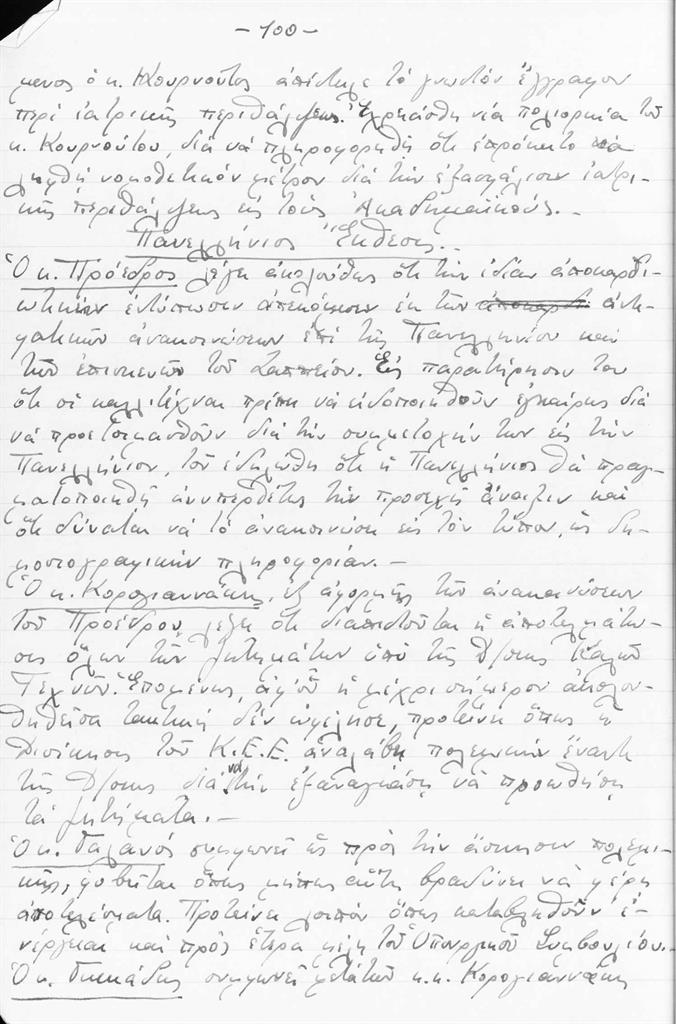 -100-
μενος ὁ κ. Κουρνοῦτος ἀπέστειλε τὸ γνωστὸν ἔγγραφον
περὶ ἰατρικῆς περιθάλψεως. Ἐχρειάσθη νέα πολιορκία τοῦ
κ. Κουρνούτου, διὰ νὰ πληροφορηθῇ ὅτι ἐπρόκειτο νὰ
ληφθῇ νομοθετικὸν μέτρον διὰ τὴν ἐξασφάλισιν ἰατρι-
κῆς περιθάλψεως εἰς τοὺς Ἀκαδημαϊκούς.-
Πανελλήνιος Ἔκθεσις.-
Ὁ κ. Πρόεδρος λέγει ἀκολούθως ὅτι τὴν ἰδίαν ἀποκαρδι-
ωτικὴν ἐντύπωσιν ἀπεκόμισεν ἐκ τῶν ἀντι-
φατικῶν ἀνακοινώσεων ἐπὶ τῆς Πανελληνίου καὶ
τῶν ἐπισκευῶν τοῦ Ζαππείου. Εἰς παρατήρησίν του
ὅτι οἱ καλλιτέχναι πρέπει νὰ εἰδοποιηθοῦν ἐγκαίρως διὰ
νὰ προετοιμασθοῦν διὰ τὴν συμμετοχήν των εἰς τὴν
Πανελλήνιον, τοῦ ἐδηλώθη ὅτι ἡ Πανελλήνιος θὰ πραγ-
ματοποιηθῇ ἀνυπερθέτως τὴν προσεχῆ ἄνοιξιν καὶ
ὅτι δύναται νὰ τὸ ἀνακοινώσῃ εἰς τὸν τύπον, ὡς δη-
μοσιογραφικὴν πληροφορίαν.-
Ὁ κ. Κορογιαννάκης, ἐξ ἀφορμῆς τῶν ἀνακοινώσεων
τοῦ Προέδρου, λέγει ὅτι διαπιστοῦται ἡ ἀποτελμάτω-
σις ὅλων τῶν ζητημάτων ὑπὸ τῆς Δ/σεως Καλῶν
Τεχνῶν. Ἑπομένως, ἀφ' οὗ ἡ μέχρι σήμερον ἀκολου-
θηθεῖσα τακτικὴ δὲν ὠφέλησε, προτείνει ὅπως ἡ
Διοίκησις τοῦ Κ.Ε.Ε. ἀναλάβῃ πολεμικὴν ἔναντι
τῆς Δ/σεως διὰ νὰ τὴν ἐξαναγκάσῃ νὰ προωθήσῃ
τὰ ζητήματα.-
Ὁ κ. Γαλανὸς συμφωνεῖ ὡς πρὸς τὴν ἄσκησιν πολεμι-
κῆς, φοβεῖται ὅπως μήπως αὕτη βραδύνει νὰ φέρῃ
ἀποτελέσματα. Προτείνει λοιπὸν ὅπως καταβληθοῦν ἐ-
νέργειαι καὶ πρὸς ἕτερα μέλη τοῦ Ὑπουργικοῦ Συμβουλίου.-
συμφωνεῖ μετὰ τῶν κ.κ. Κορογιαννάκη